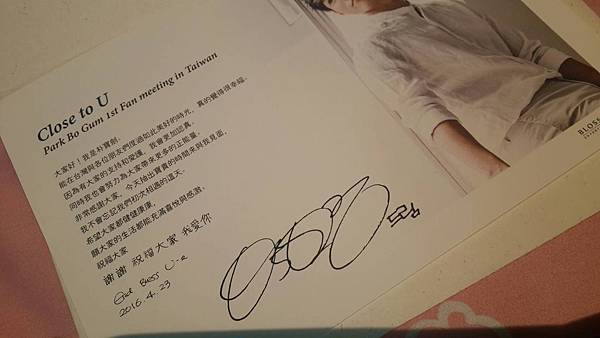 Close to U
Park Bo Gum 1st Fan meeting in Taiwan
大家好！我是朴寶劍.
能在台灣與各位朋友們度過如此美好的時光，真的覺得很幸福.
因為有大家的支持和愛護，我會更加認真，
同時我也會努力為大家帶來更多的正能量.
非常感謝大家，今天抽出寶貴的時間來與我見面，
我不會忘記我們初次相遇的這天.
希望大家都健健康康，
願大家的生活都能充滿喜悅與感激，
祝福大家
謝謝 祝福大家 我愛你
God Bless U-e
2016.4.23
BLOSS